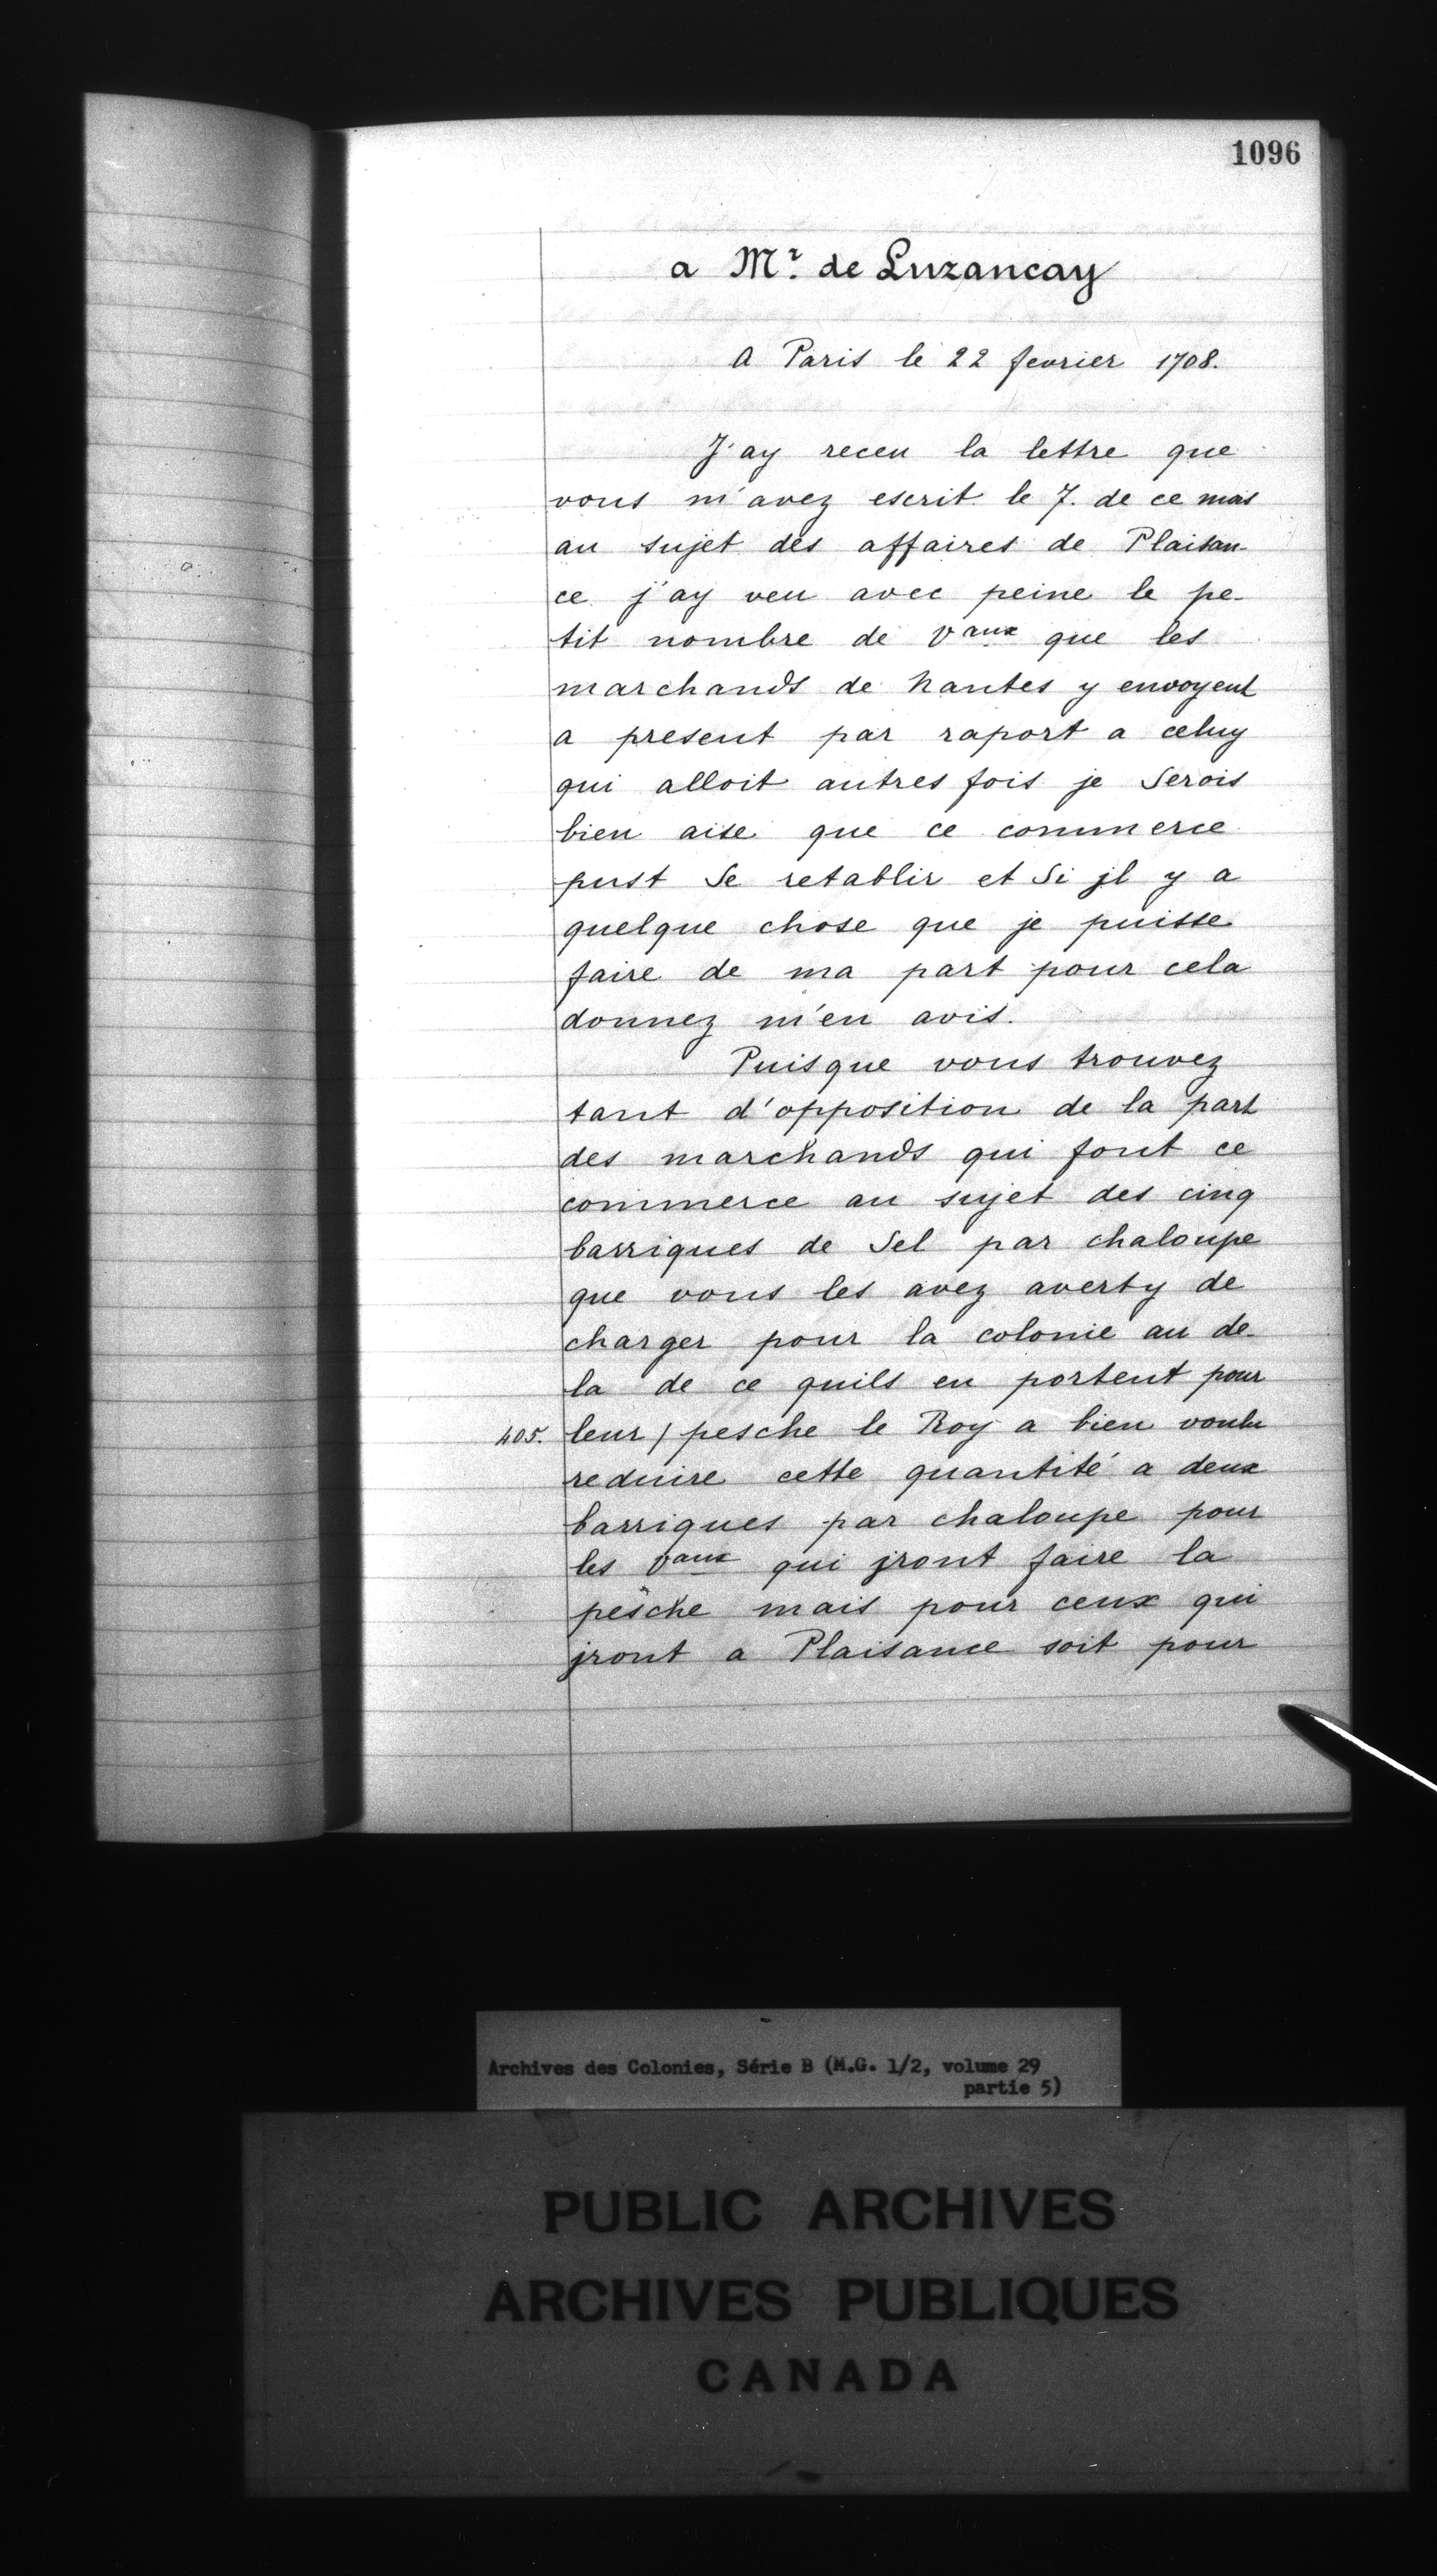 1096
a Mr. de Luzancay
A Paris le 22 fevrier 1708.
J'ay receu la lettre que
vous m'avez escrit le 7. de ce mois
au sujet des affaires de Plaisan-
ce j'ay veu avec peine le pe-
tit nombre de vaux que les
marchands de nantes y envoyent
a present par raport a celuy
qui alloit autres fois je Serois
bien aise que ce commerce
pust Se retablir et Si jl y a
quelque chose que je puisse
faire de ma part pour cela
donnez m'en avis.
Puisque vous trouvez
tant d'opposition de la part
des marchands qui font ce
commerce au sujet des cinq
barriques de Sel par chaloupe
que vous les avez averty de
charger pour la colonie au de-
la de ce quils en portent pour
405. leur / pesche le Roy a bien voulu
reduire cette quantité a deux
barriques par chaloupe pour
les vaux qui jront faire la
pesche mais pour ceux qui
jront a Plaisance soit pour
Archives des Colonies, Série B (M.G. 1/2, volume 29
partie 5)
PUBLIC ARCHIVES
ARCHIVES PUBLIQUES
CANADA